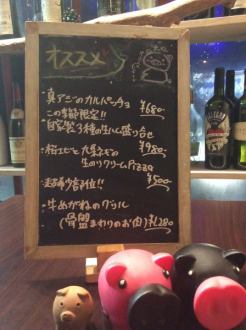 オススメ
・真アジのカルパッチョ
¥680
この季節限定!!
自家製3種の生ハム盛り合せ
¥980
・桜エビと九条ネギの
生のりクリームPizza
¥500
・超希少部位!!
・牛めがねのグリル
(骨盤まわりのお肉)¥1,280